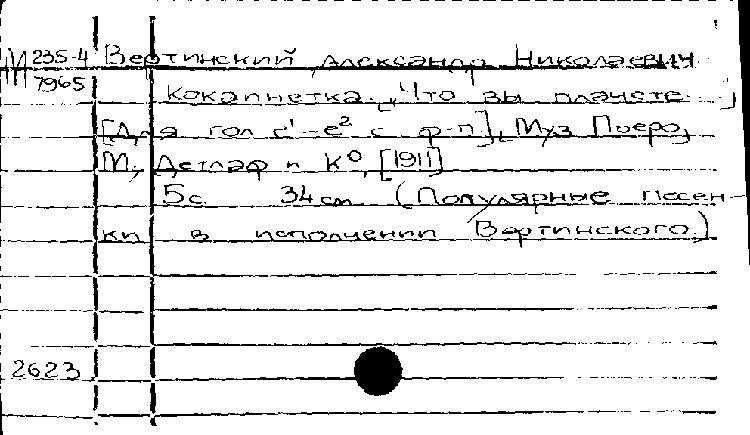 М 235-4 Вертинский, Александр Николаевич
7965
Кокаинетка. „Что вы плачете
[Для гол c¹-e² с ф-п], Муз Пьеро,
М., Детлаф и К⁰, [1911]
5с. 34см (Популярные песен-
ки в исполнении Вертинского)
2623